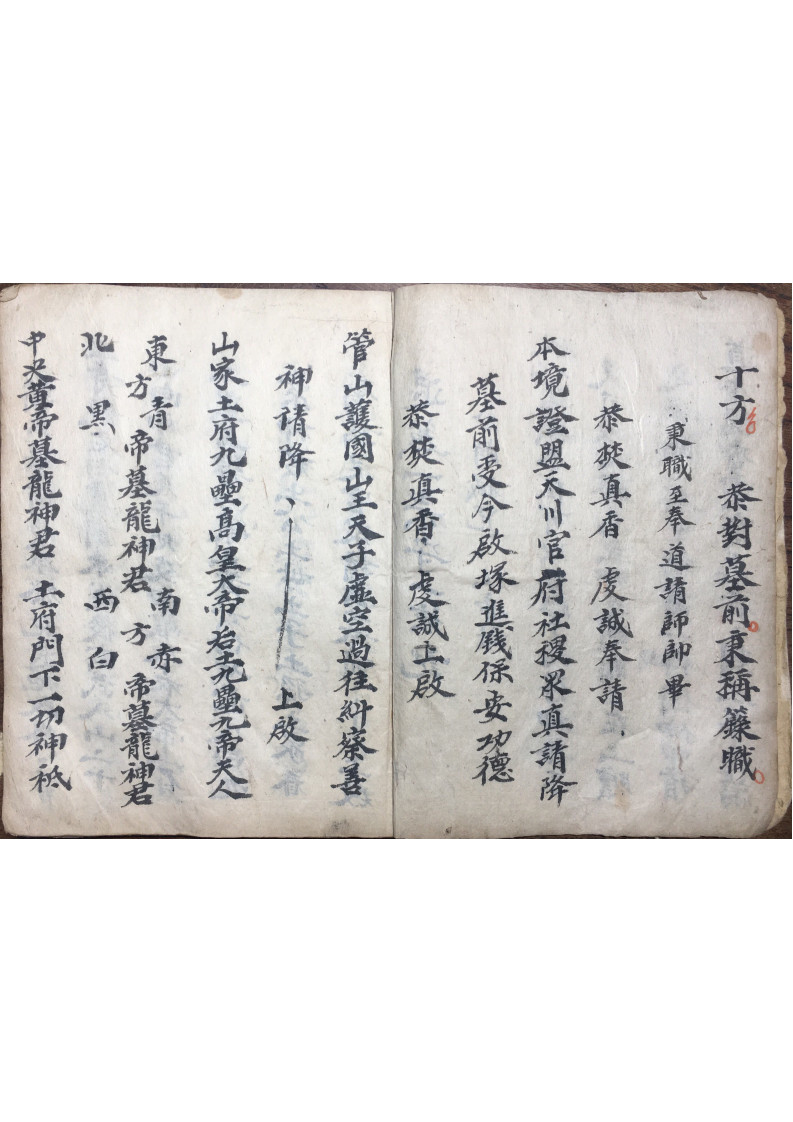 十方 恭對墓前秉稱籙職
秉職至奉道請師師畢
恭焚真香 虔誠奉請
本境證盟天川官府社稷眾真請降
墓前受今啟塚進餞保安功德
恭焚真香 虔誠上啟
管山護國山王天子虛空過往糾察善
神請降 上啟
山家土府九壘高皇大帝后土九壘九帝夫人
東 青 南 赤
方 帝墓龍神君 方 帝墓龍神君
北 黑 西 白
中央黃帝墓龍神君 土府門下一切神祇